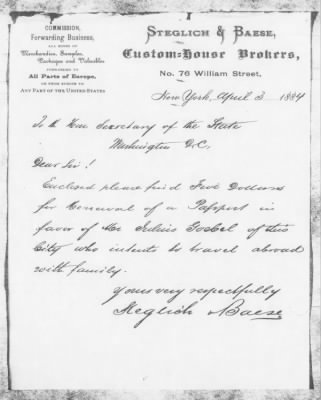 COMMISSION,
Forwarding Business,
ALL KINDS OF
Merchandise, Samples,
Packages and Valuables
FORWARDED TO
All Parts of Europe,
OR FROM EUROPE TO
ANY PART OF THE UNITED STATES
STEGLICH & BAESE,
Custom-House Brokers,
No. 76 William Street,
New York, April 3 1884
To the Hon Secretary of the State
Washington D.C.
Dear Sir!
Enclosed please find Five Dollars
for Renewal of a Passport in
favor of Mr Julius Goebel of this
City who intents to travel abroad
with family.
Yours very respectfully
Steglich & Baese